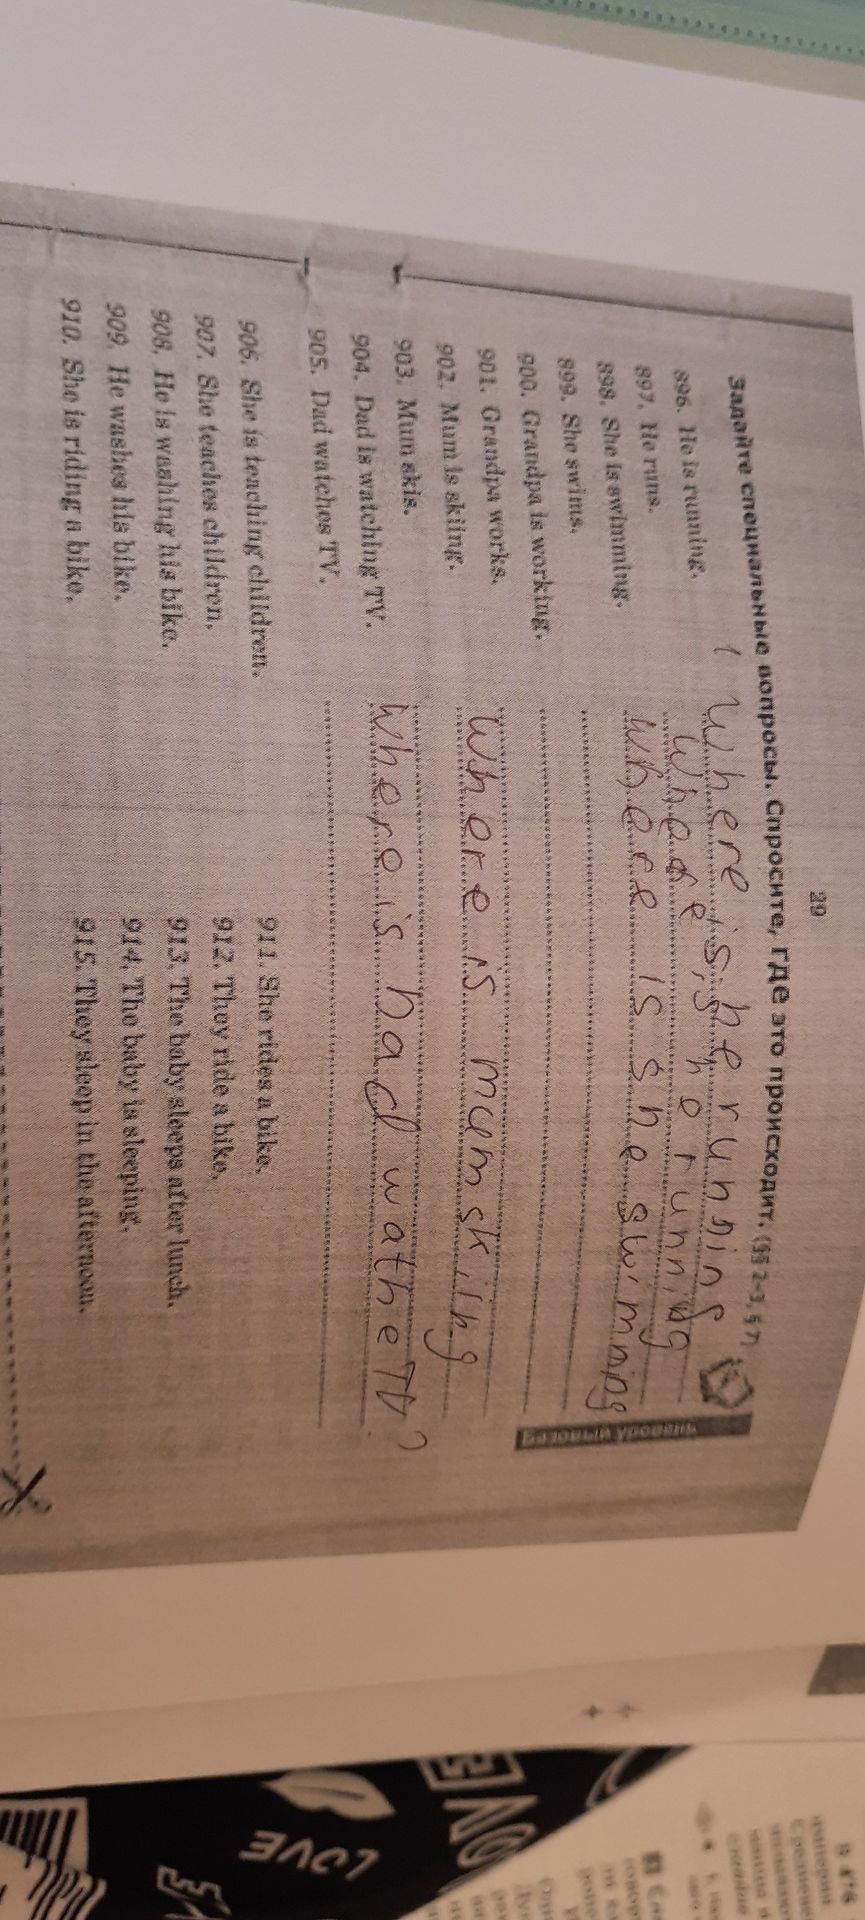 29
Задайте специальные вопросы. Спросите, где это происходит. (§§ 2-3, § 7)
896. He is running. Where is he running
897. He runs. Where is he running
898. She is swimming. Where is she swimning
899. She swims.
900. Grandpa is working.
901. Grandpa works.
902. Mum is skiing. Where is mum skiing
903. Mum skis.
904. Dad is watching TV. Where is Dad wathe TV?
905. Dad watches TV.
906. She is teaching children.
907. She teaches children.
908. He is washing his bike.
909. He washes his bike.
910. She is riding a bike.
911. She rides a bike.
912. They ride a bike.
913. The baby sleeps after lunch.
914. The baby is sleeping.
915. They sleep in the afternoon.
LOVE